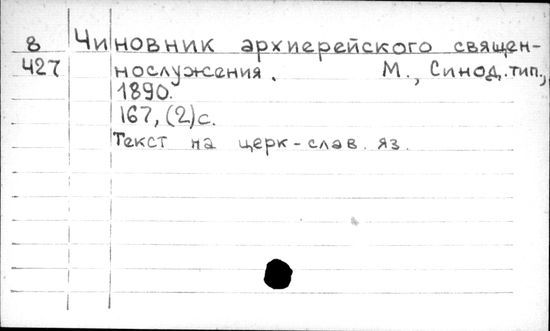 8 Чиновник архиерейского священ-
427 нослужения. М., Синод. тип.,
1890.
167, (2) с.
Текст на церк-слав. яз.